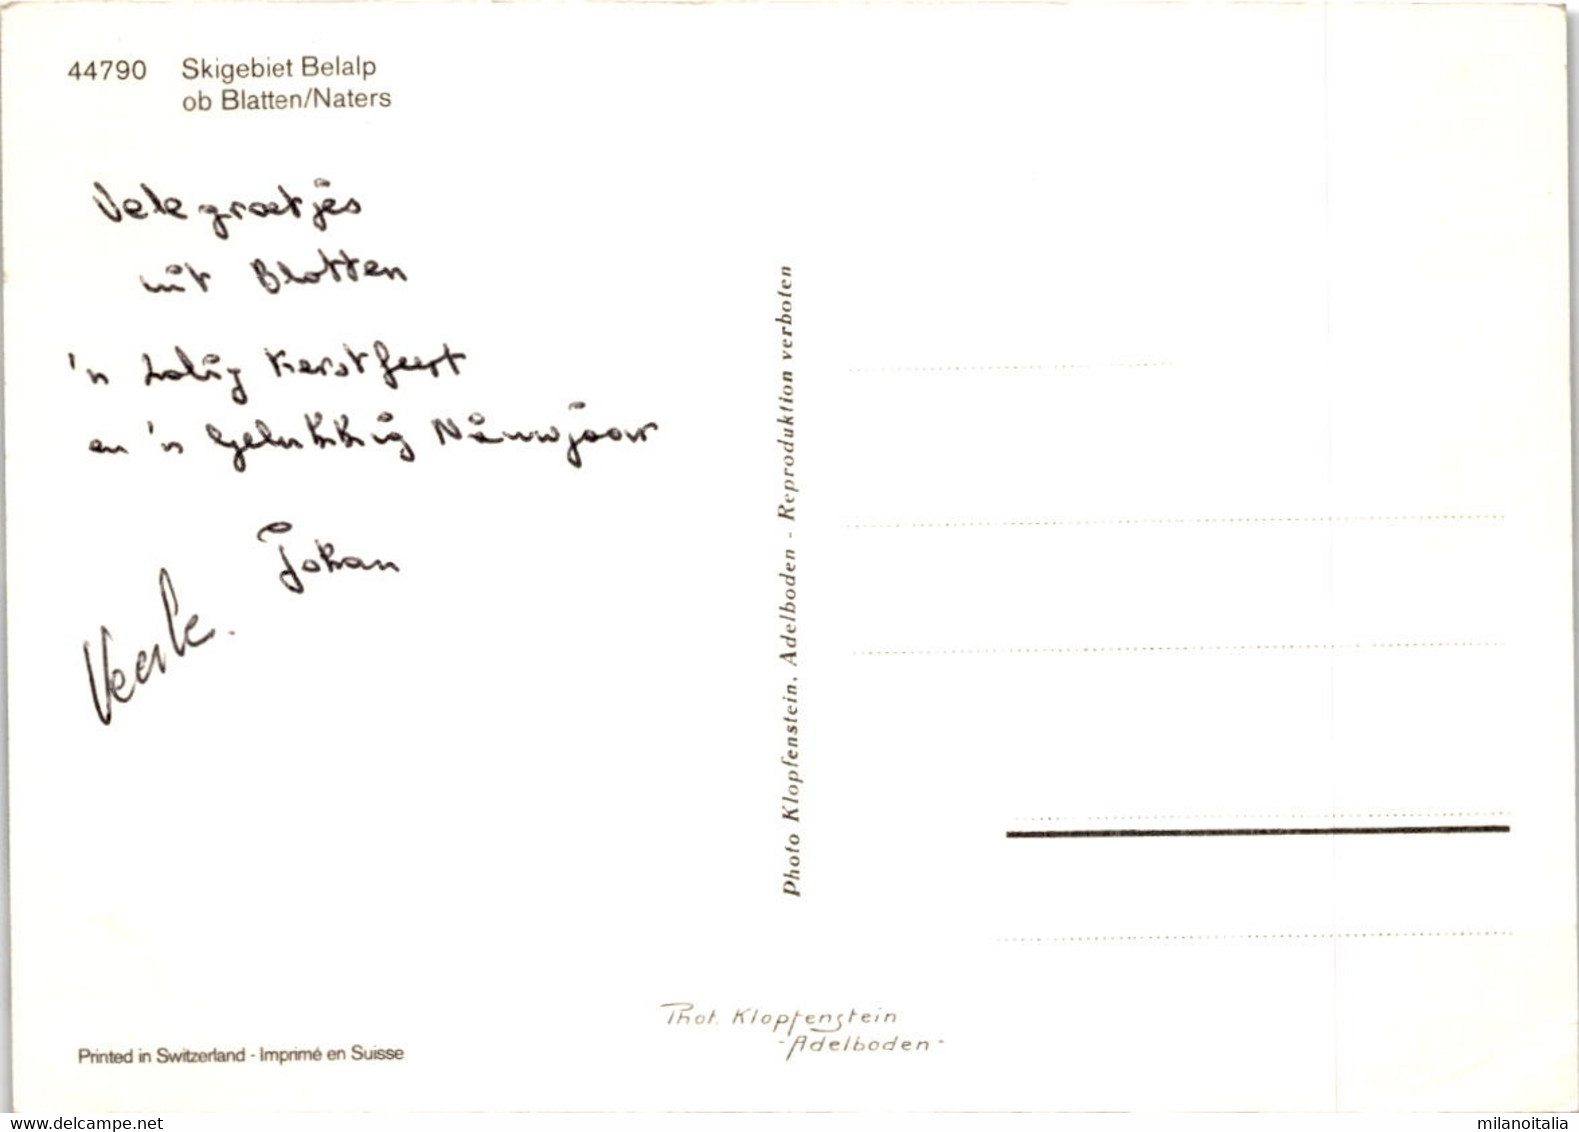 44790 Skigebiet Belalp
ob Blatten/Naters
Vele groetjes
uit Blatten
'n zalig Kerstfeest
en 'n Gelukkig Nieuwjaar
Johan
Veerle.
Photo Klopfenstein, Adelboden - Reproduktion verboten
Phot. Klopfenstein
-Adelboden-
Printed in Switzerland - Imprimé en Suisse
www.delcampe.net
milanoitalia